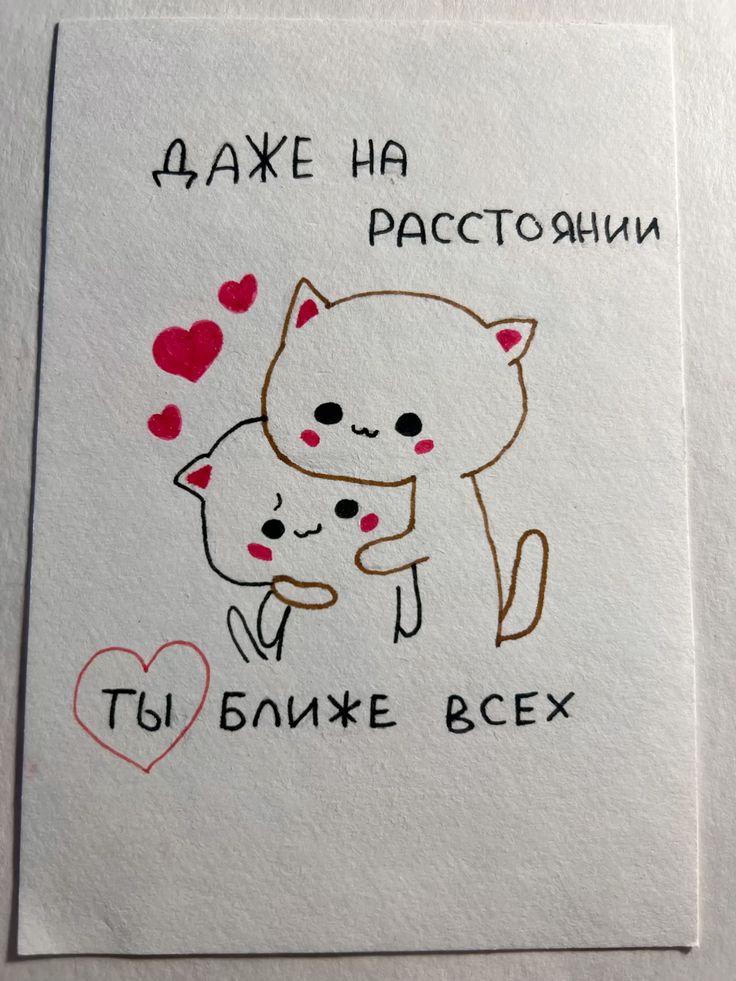 ДАЖЕ НА
РАССТОЯНИИ
ТЫ БЛИЖЕ ВСЕХ